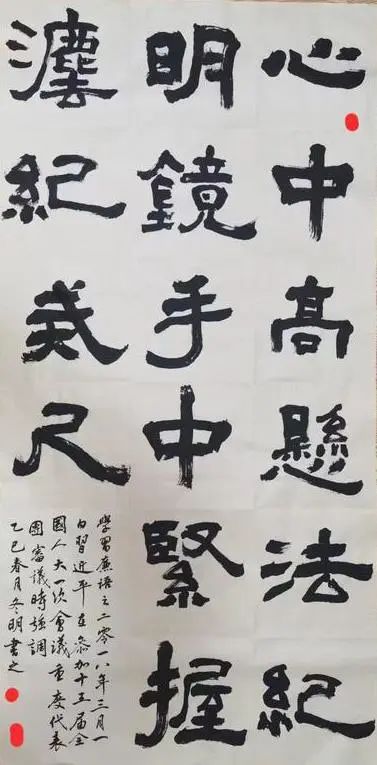 心中高懸法紀
明鏡手中緊握
灋紀戒尺
學習廉語之二零一八年三月一
日習近平在參加十五届全
國人大一次會議重慶代表
團審議時強調
乙巳春月冬明書之